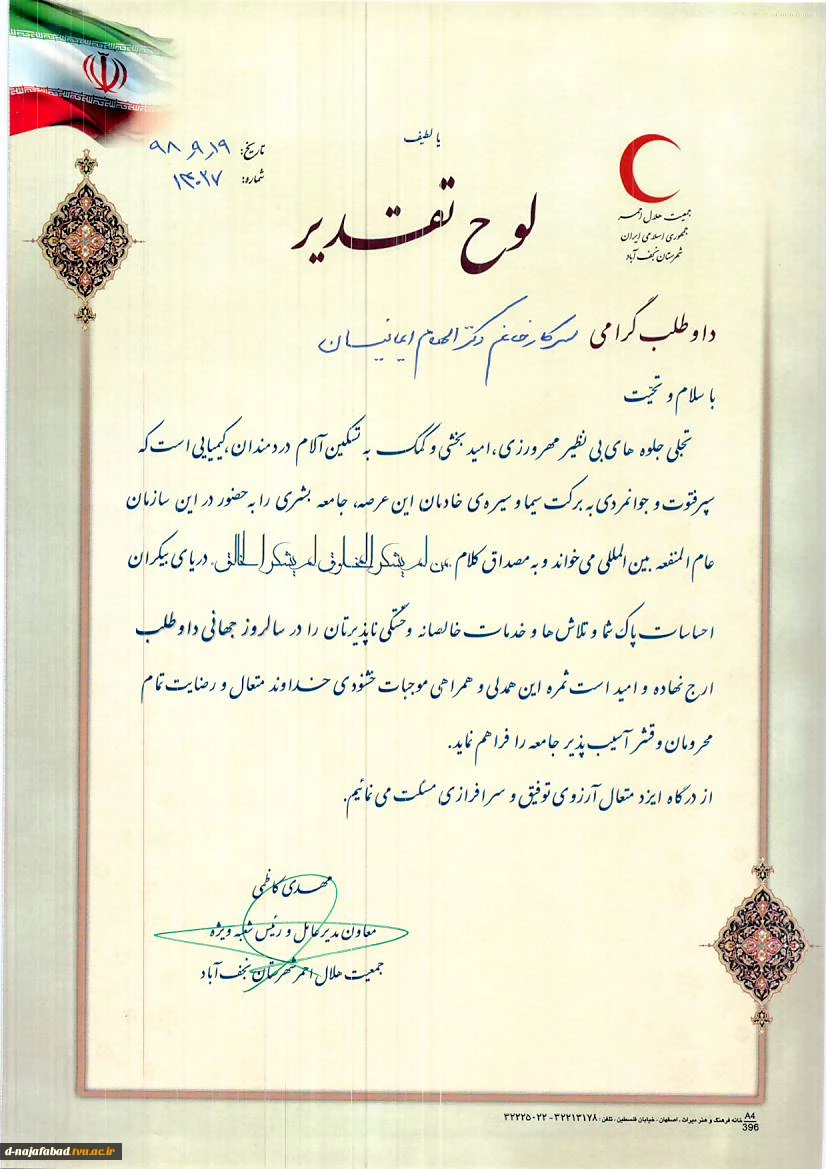 یا لطیف
تاریخ: ۹۸٫۹٫۱۹
شماره: ۱۳۰۲۷
جمعیت هلال احمر
جمهوری اسلامی ایران
شهرستان نجف آباد
لوح تقدیر
داوطلب گرامی سرکار خانم دکتر الهام ایمانیان
با سلام و تحیّت
تجلی جلوه های بی نظیر مهرورزی، امید بخشی و کمک به تسکین آلام دردمندان، کیمیایی است که
سپر فتوت و جوانمردی به برکت سیما و سیره‌ی خادمان این عرصه، جامعه بشری را به حضور در این سازمان
عام المنفعه بین المللی می‌خواند و به مصداق کلام من لم یشکر المخلوق لم یشکر الخالق. دریای بیکران
احساسات پاک شما و تلاش ها و خدمات خالصانه و خستگی ناپذیرتان را در سالروز جهانی داوطلب
ارج نهاده و امید است ثمره این همدلی و همراهی موجبات خشنودی خداوند متعال و رضایت تمام
محرومان و قشر آسیب پذیر جامعه را فراهم نماید.
از درگاه ایزد متعال آرزوی توفیق و سرافرازی مسئلت می نمائیم.
مهدی کاظمی
معاون مدیرعامل و رئیس شعبه ویژه
جمعیت هلال احمر شهرستان نجف آباد
A4
396
خانه فرهنگ و هنر میراث ، اصفهان ، خیابان فلسطین ، تلفن : ۳۲۲۱۳۱۷۸ - ۳۲۲۲۵۰۲۲
d-najafabad.tvu.ac.ir